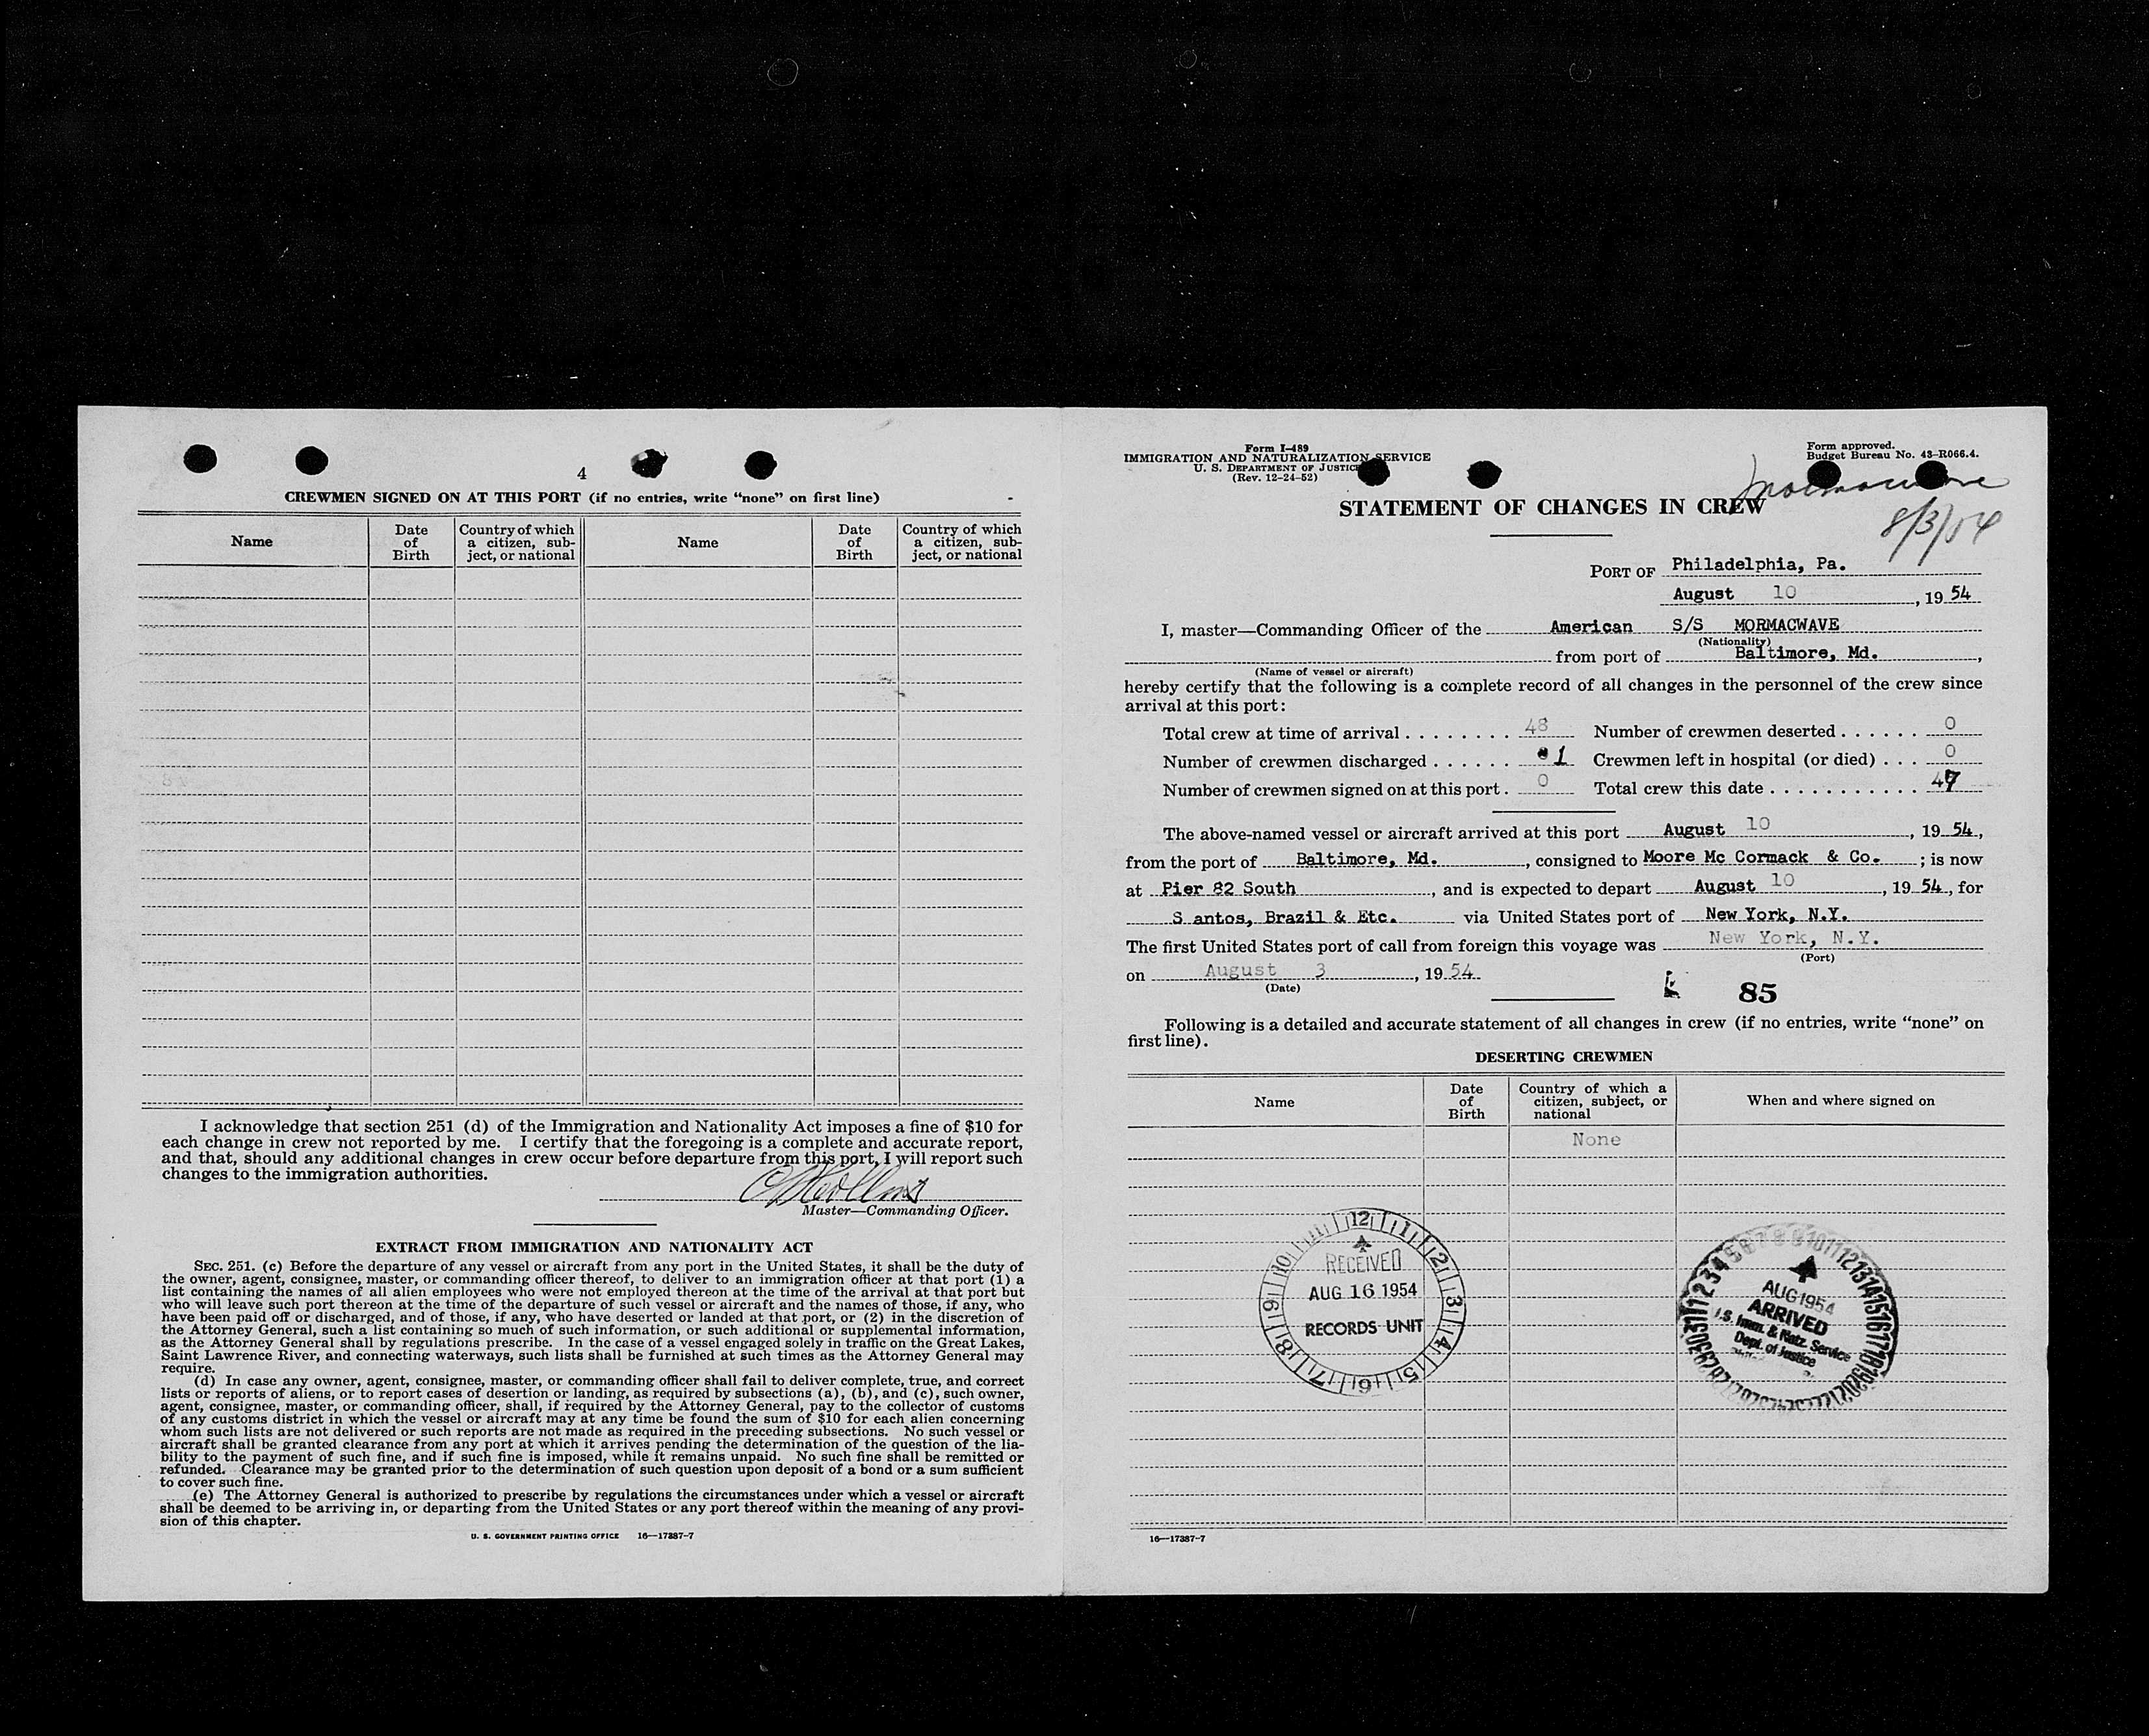 4
CREWMEN SIGNED ON AT THIS PORT (if no entries, write “none” on first line)
Name
Date of Birth
Country of which a citizen, sub-ject, or national
Name
Date of Birth
Country of which a citizen, sub-ject, or national
I acknowledge that section 251 (d) of the Immigration and Nationality Act imposes a fine of $10 for
each change in crew not reported by me. I certify that the foregoing is a complete and accurate report,
and that, should any additional changes in crew occur before departure from this port, I will report such
changes to the immigration authorities.
Master—Commanding Officer.
EXTRACT FROM IMMIGRATION AND NATIONALITY ACT
SEC. 251. (c) Before the departure of any vessel or aircraft from any port in the United States, it shall be the duty of
the owner, agent, consignee, master, or commanding officer thereof, to deliver to an immigration officer at that port (1) a
list containing the names of all alien employees who were not employed thereon at the time of the arrival at that port but
who will leave such port thereon at the time of the departure of such vessel or aircraft and the names of those, if any, who
have been paid off or discharged, and of those, if any, who have deserted or landed at that port, or (2) in the discretion of
the Attorney General, such a list containing so much of such information, or such additional or supplemental information,
as the Attorney General shall by regulations prescribe. In the case of a vessel engaged solely in traffic on the Great Lakes,
Saint Lawrence River, and connecting waterways, such lists shall be furnished at such times as the Attorney General may
require.
(d) In case any owner, agent, consignee, master, or commanding officer shall fail to deliver complete, true, and correct
lists or reports of aliens, or to report cases of desertion or landing, as required by subsections (a), (b), and (c), such owner,
agent, consignee, master, or commanding officer, shall, if required by the Attorney General, pay to the collector of customs
of any customs district in which the vessel or aircraft may at any time be found the sum of $10 for each alien concerning
whom such lists are not delivered or such reports are not made as required in the preceding subsections. No such vessel or
aircraft shall be granted clearance from any port at which it arrives pending the determination of the question of the lia-
bility to the payment of such fine, and if such fine is imposed, while it remains unpaid. No such fine shall be remitted or
refunded. Clearance may be granted prior to the determination of such question upon deposit of a bond or a sum sufficient
to cover such fine.
(e) The Attorney General is authorized to prescribe by regulations the circumstances under which a vessel or aircraft
shall be deemed to be arriving in, or departing from the United States or any port thereof within the meaning of any provi-
sion of this chapter.
U. S. GOVERNMENT PRINTING OFFICE 16—17387-7
Form I-489
IMMIGRATION AND NATURALIZATION SERVICE
U. S. DEPARTMENT OF JUSTICE
(Rev. 12-24-52)
Form approved.
Budget Bureau No. 43-R066.4.
Mormacwave
8/3/54
STATEMENT OF CHANGES IN CREW
PORT OF Philadelphia, Pa.
August 10, 19 54
I, master—Commanding Officer of the American S/S MORMACWAVE
(Nationality)
from port of Baltimore, Md.,
(Name of vessel or aircraft)
hereby certify that the following is a complete record of all changes in the personnel of the crew since
arrival at this port:
Total crew at time of arrival . . . . . . . . 48 Number of crewmen deserted . . . . . . 0
Number of crewmen discharged . . . . . . 1 Crewmen left in hospital (or died) . . . 0
Number of crewmen signed on at this port . 0 Total crew this date . . . . . . . . . . . 47
The above-named vessel or aircraft arrived at this port August 10, 19 54,
from the port of Baltimore, Md., consigned to Moore Mc Cormack & Co. ; is now
at Pier 82 South, and is expected to depart August 10, 19 54, for
S antos, Brazil & Etc. via United States port of New York, N.Y.
The first United States port of call from foreign this voyage was New York, N.Y.
(Port)
on August 3, 19 54
(Date)
85
Following is a detailed and accurate statement of all changes in crew (if no entries, write “none” on
first line).
DESERTING CREWMEN
Name
Date of Birth
Country of which a citizen, subject, or national
When and where signed on
None
RECEIVED
AUG 16 1954
RECORDS UNIT
AUG 1954
ARRIVED
U.S. Imm. & Natz. Service
Dept. of Justice
16—17387-7